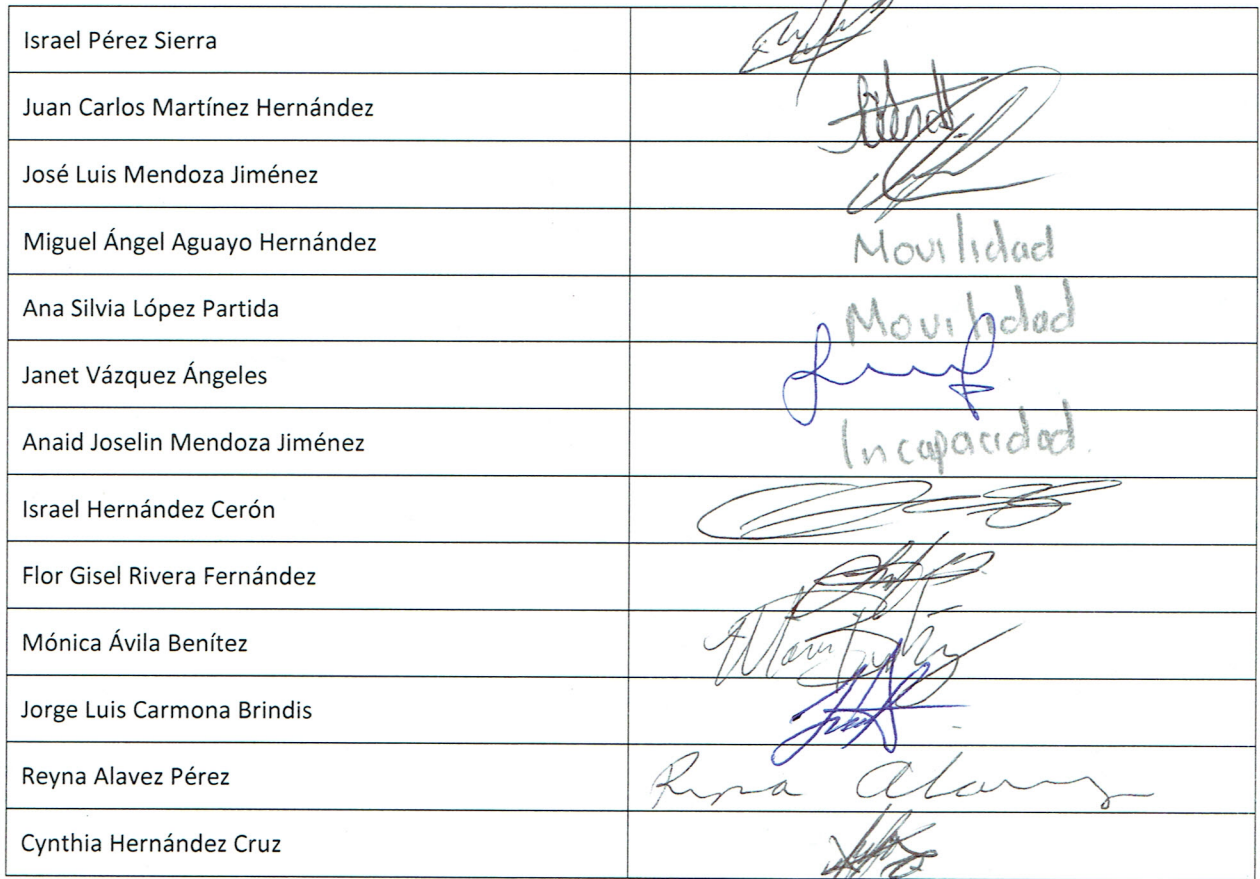 Israel Pérez Sierra
Juan Carlos Martínez Hernández
José Luis Mendoza Jiménez
Miguel Ángel Aguayo Hernández Movilidad
Ana Silvia López Partida Movilidad
Janet Vázquez Ángeles
Anaid Joselin Mendoza Jiménez Incapacidad.
Israel Hernández Cerón
Flor Gisel Rivera Fernández
Mónica Ávila Benítez
Jorge Luis Carmona Brindis
Reyna Alavez Pérez
Cynthia Hernández Cruz